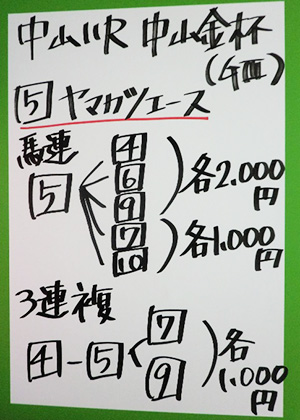 中山11R 中山金杯
(GIII)
5 ヤマカツエース
馬連
5 4 6 9 各2,000円
7 10 各1,000円
3連複
4-5 7 9 各1,000円